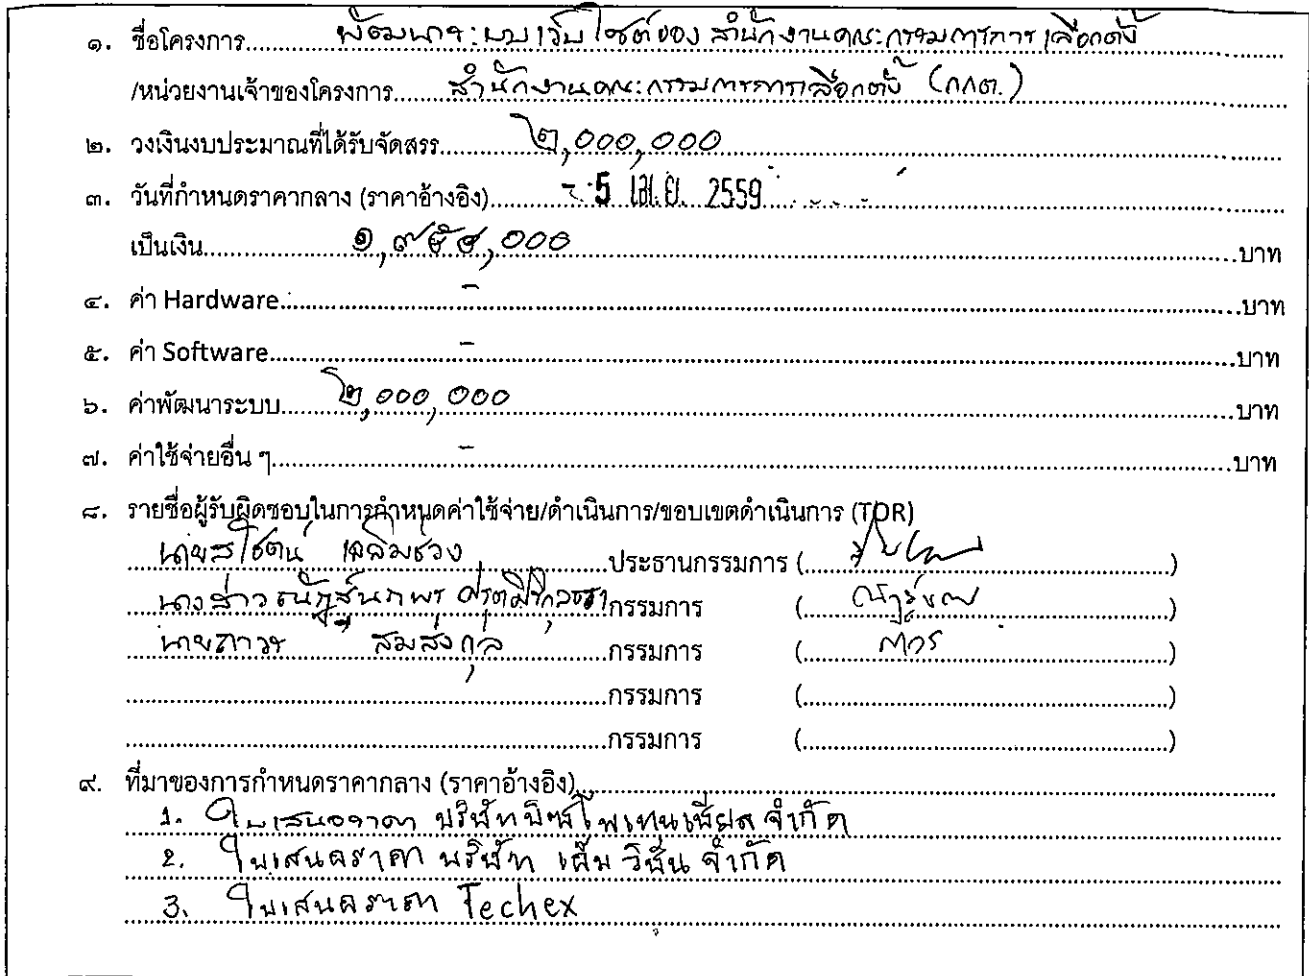 ๑. ชื่อโครงการ พัฒนาระบบเว็บไซต์ของ สำนักงานคณะกรรมการการเลือกตั้ง
/หน่วยงานเจ้าของโครงการ สำนักงานคณะกรรมการการเลือกตั้ง (กกต.)
๒. วงเงินงบประมาณที่ได้รับจัดสรร ๒,๐๐๐,๐๐๐
๓. วันที่กำหนดราคากลาง (ราคาอ้างอิง) 5 เม.ย. 2559
เป็นเงิน ,๐๐๐ บาท
๔. ค่า Hardware - บาท
๕. ค่า Software - บาท
๖. ค่าพัฒนาระบบ ๒,๐๐๐,๐๐๐ บาท
๗. ค่าใช้จ่ายอื่น ๆ - บาท
๘. รายชื่อผู้รับผิดชอบในการกำหนดค่าใช้จ่าย/ดำเนินการ/ขอบเขตดำเนินการ (TOR)
นายสุโชตน์ เฉลิมช่วง ประธานกรรมการ ( )
นางสาว กรรมการ ( )
นายถาวร สมส่งกุล กรรมการ ( ถาวร )
กรรมการ ( )
กรรมการ ( )
๙. ที่มาของการกำหนดราคากลาง (ราคาอ้างอิง)
1. ใบเสนอราคา บริษัท บิซโพเทนเชียล จำกัด
2. ใบเสนอราคา บริษัท เอ็ม วิชั่น จำกัด
3. ใบเสนอราคา Techex